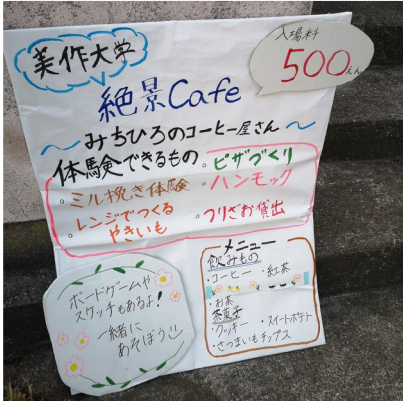 美作大学
入場料
500えん
絶景Cafe
～みちひろのコーヒー屋さん～
体験できるもの
・ピザづくり
・ミル挽き体験
・ハンモック
・レンジでつくる
やきいも
・つりざお貸出
ボードゲームや
スケッチもあるよ!
一緒に
あそぼう
メニュー
飲みもの
・コーヒー ・紅茶
・お茶
茶菓子
・クッキー ・スイートポテト
・さつまいもチップス